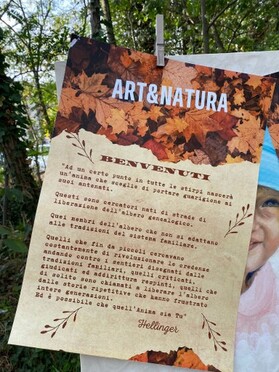 ART&NATURA
BENVENUTI
"Ad un certo punto in tutte le stirpi nascerà
un'anima che sceglie di portare guarigione ai
suoi antenati.
Questi sono cercatori nati di strade di
liberazione dell'albero genealogico.
Quei membri dell'albero che non si adattano
alle tradizioni del sistema familiare.
Quelli che fin da piccoli cercavano
costantemente di rivoluzionare le credenze
andando contro i sentieri disegnati dalle
tradizioni familiari, quelli criticati,
giudicati ed addirittura respinti, quelli che
di solito sono chiamati a liberare l'albero
dalle storie ripetitive che hanno frustrato
intere generazioni.
Ed è possibile che quell'anima sia Tu"
Hellinger